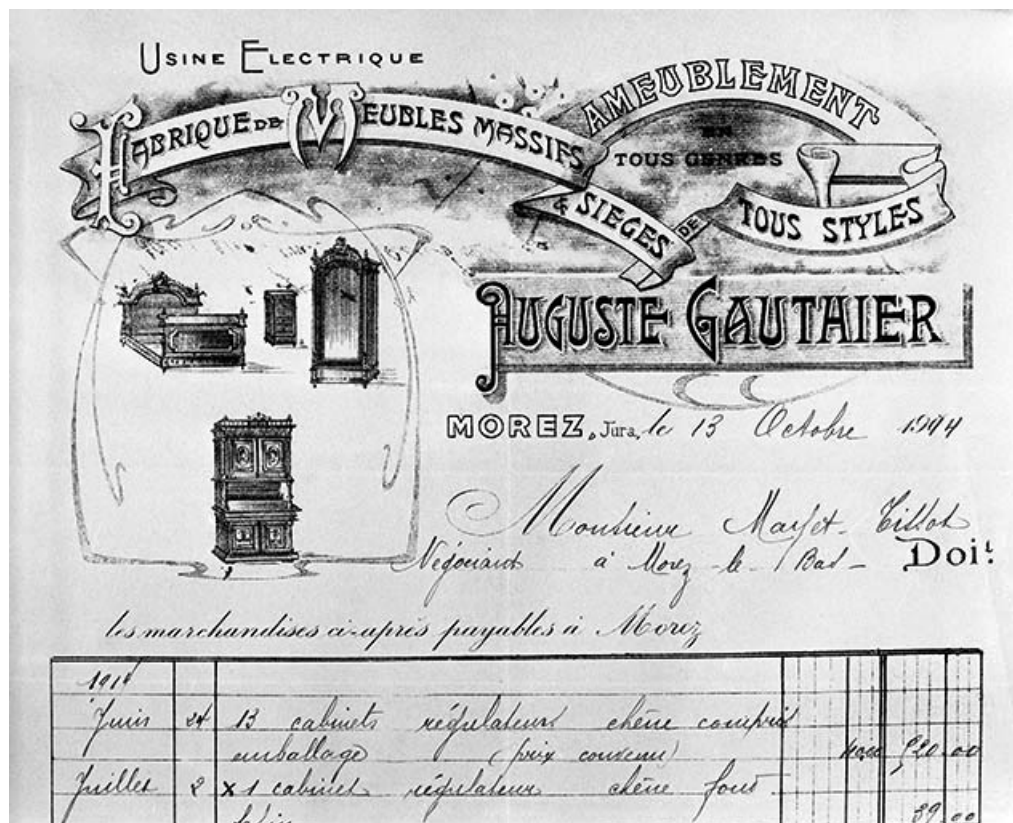 USINE ELECTRIQUE
FABRIQUE DE MEUBLES MASSIFS
AMEUBLEMENT
EN
TOUS GENRES
& SIEGES DE TOUS STYLES
AUGUSTE GAUTHIER
MOREZ, Jura, le 13 Octobre
Monsieur
Négociant à Morez-le-Bas - Doit
les marchandises ci-après payables à Morez
1914
Juin 24 13 cabinets régulateurs chêne compris
emballage (prix convenu) 520.00
Juillet 2 x 1 cabinet régulateur chêne
39.00